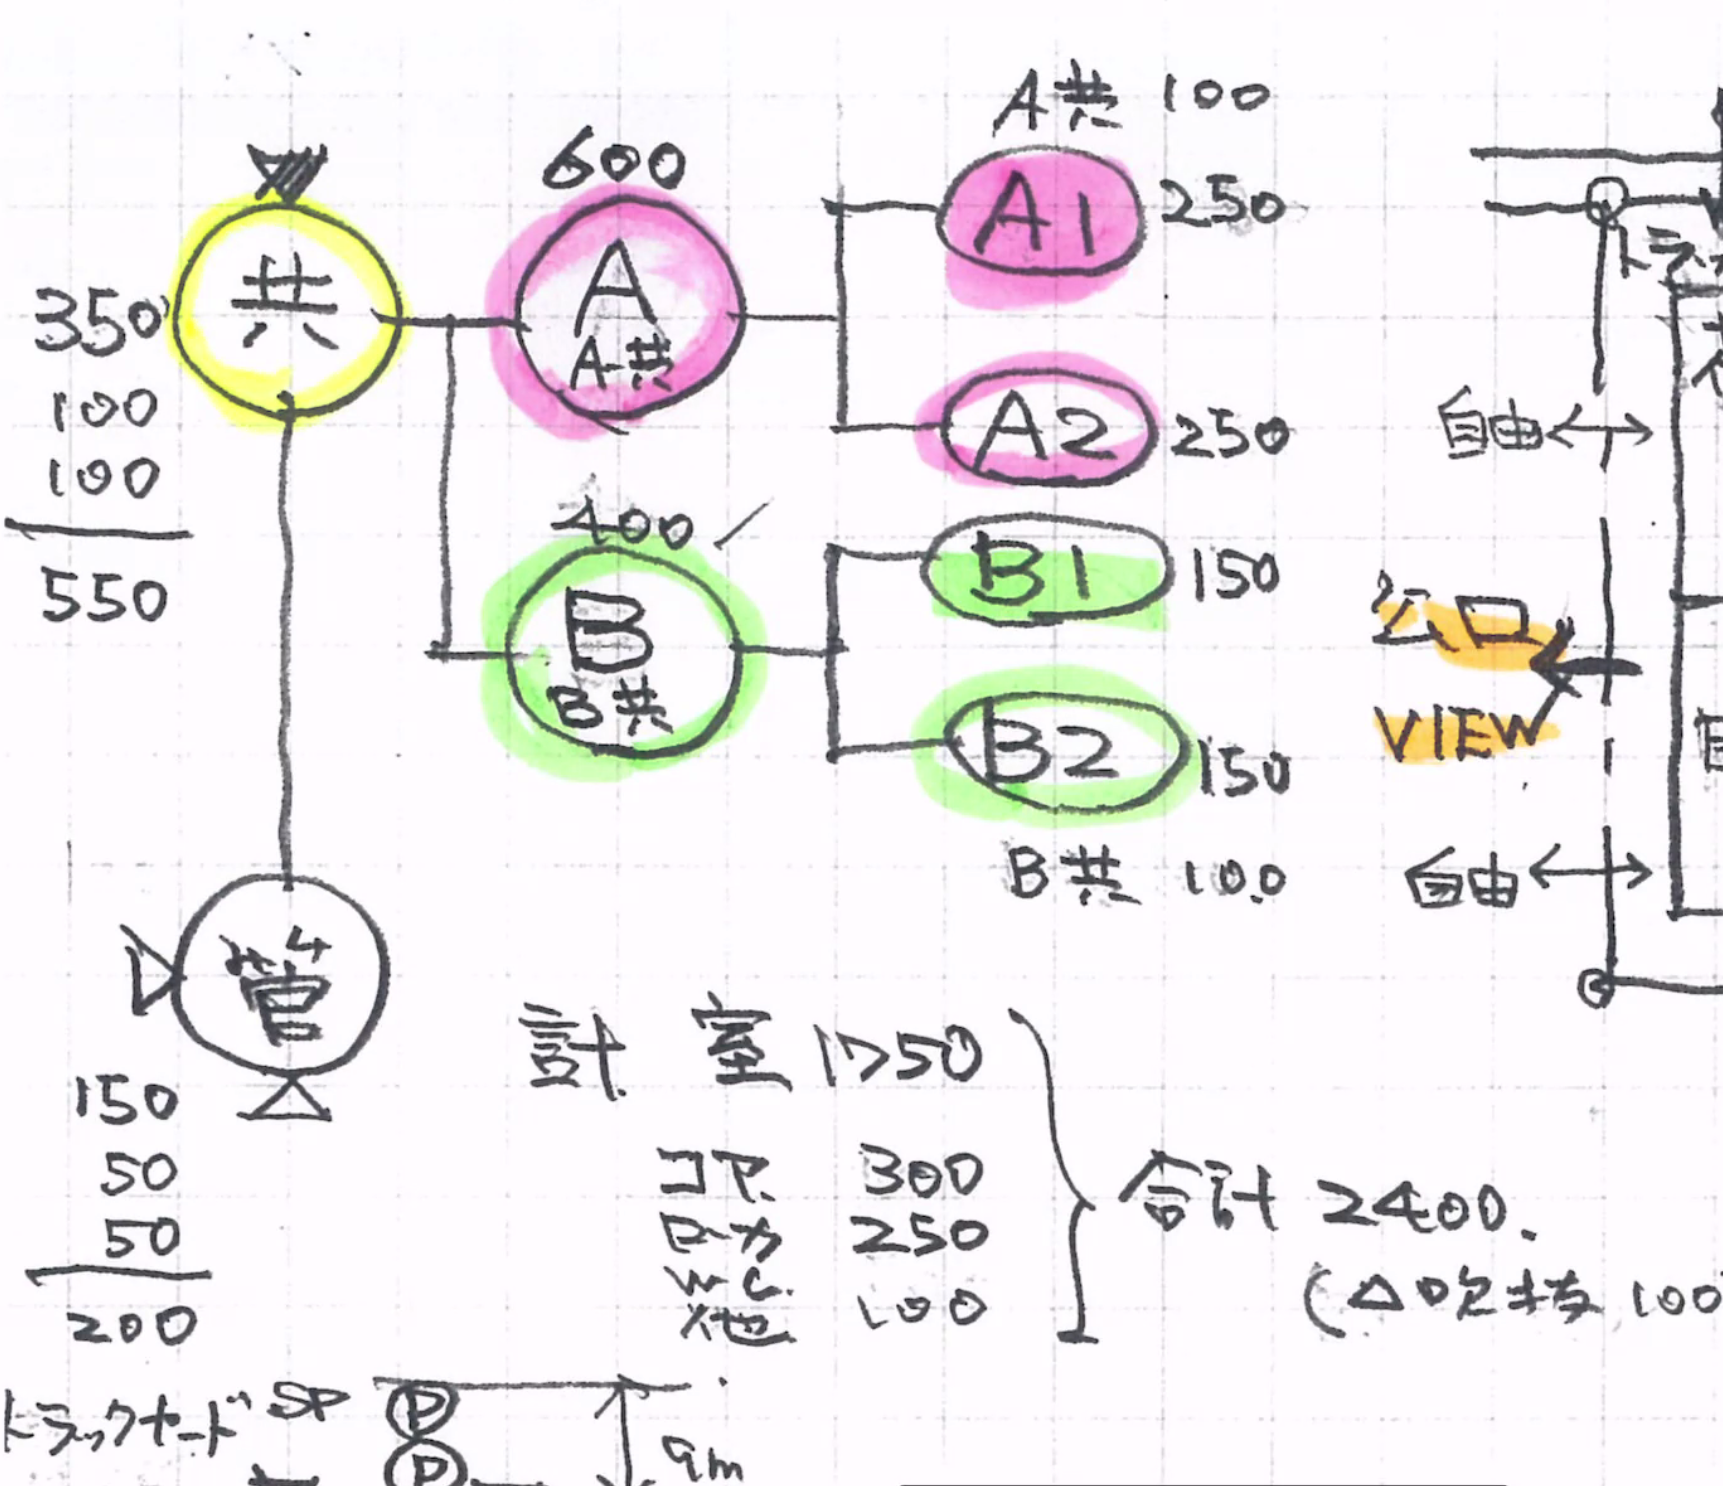 A共 100
600
A1 250
共
A
A共
350
100
100
550
A2 250
自由
400
B
B共
B1 150
公口
VIEW
B2 150
B共 100
自由
管
150
50
50
200
計 室 1750
コア 300
ローカ 250
W.C.
他 100
合計 2400.
(△吹抜 100
トラックヤード SP P
P
9m